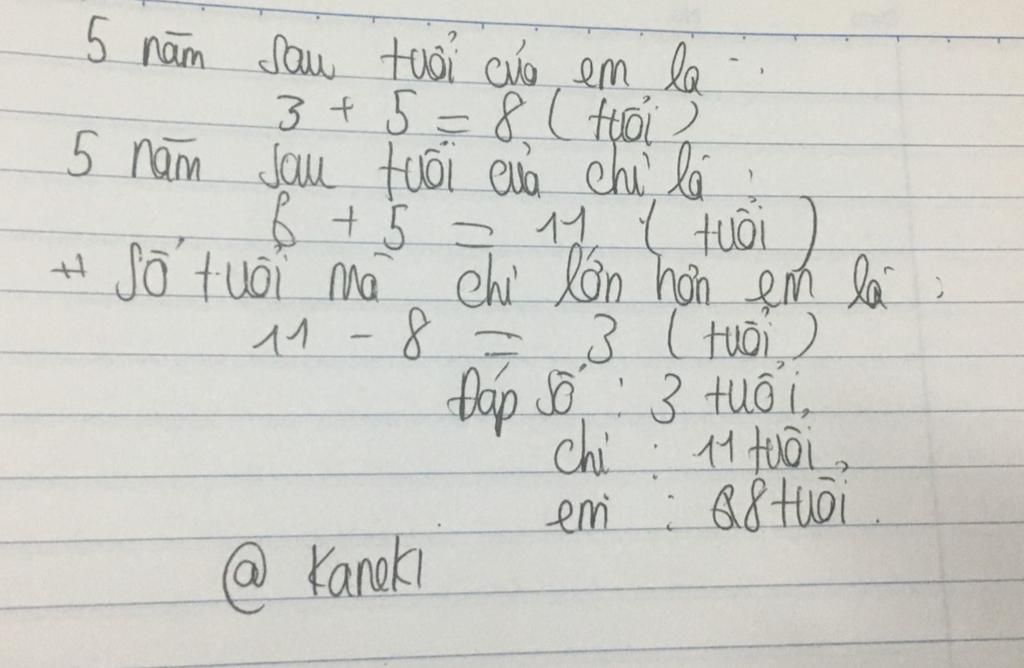 5 năm sau tuổi của em là :
3 + 5 = 8 ( tuổi )
5 năm sau tuổi của chị là :
6 + 5 = 11 ( tuổi )
Số tuổi mà chị lớn hơn em là :
11 - 8 = 3 ( tuổi )
Đáp số : 3 tuổi,
chị : 11 tuổi,
em : 8 tuổi.
@ Kaneki